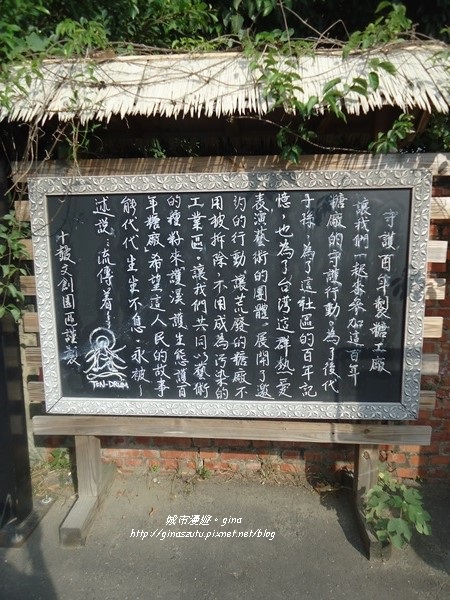 守護百年製糖工廠
讓我們一起來參加這百年
糖廠的守護行動。為了後代
子孫，為了這社區的百年記
憶，也為了台灣這群熱愛
表演藝術的團體，展開了邀
約的行動，讓荒廢的糖廠不
用被拆除，不用成為污染的
工業區，讓我們共同以藝術
的種籽來護溪護生態護百
年糖廠。希望這人民的故事
能代代生生不息，永被
述說，流傳著。
十鼓文創園區謹製
TEN-DRUM
城市漫遊。gina
http://ginaszutu.pixnet.net/blog